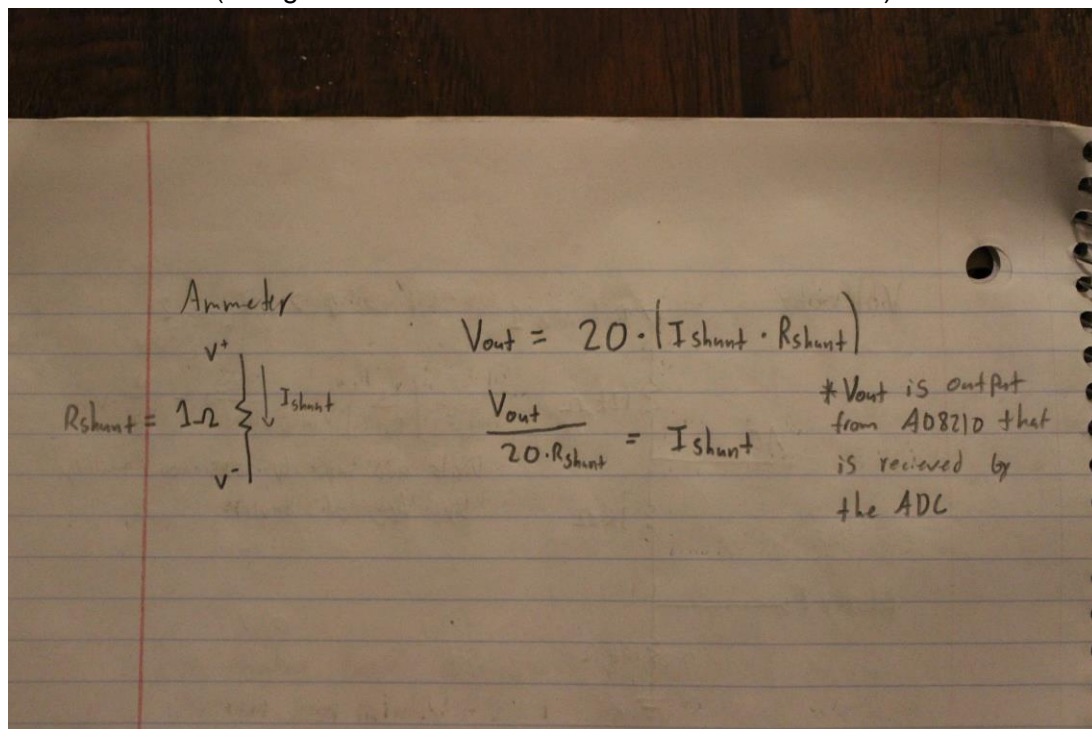 Ammeter
V+
Rshunt = 1Ω
Ishunt
V-
Vout = 20·(Ishunt · Rshunt)
Vout / 20·Rshunt = Ishunt
*Vout is output
from AD8210 that
is recieved by
the ADC